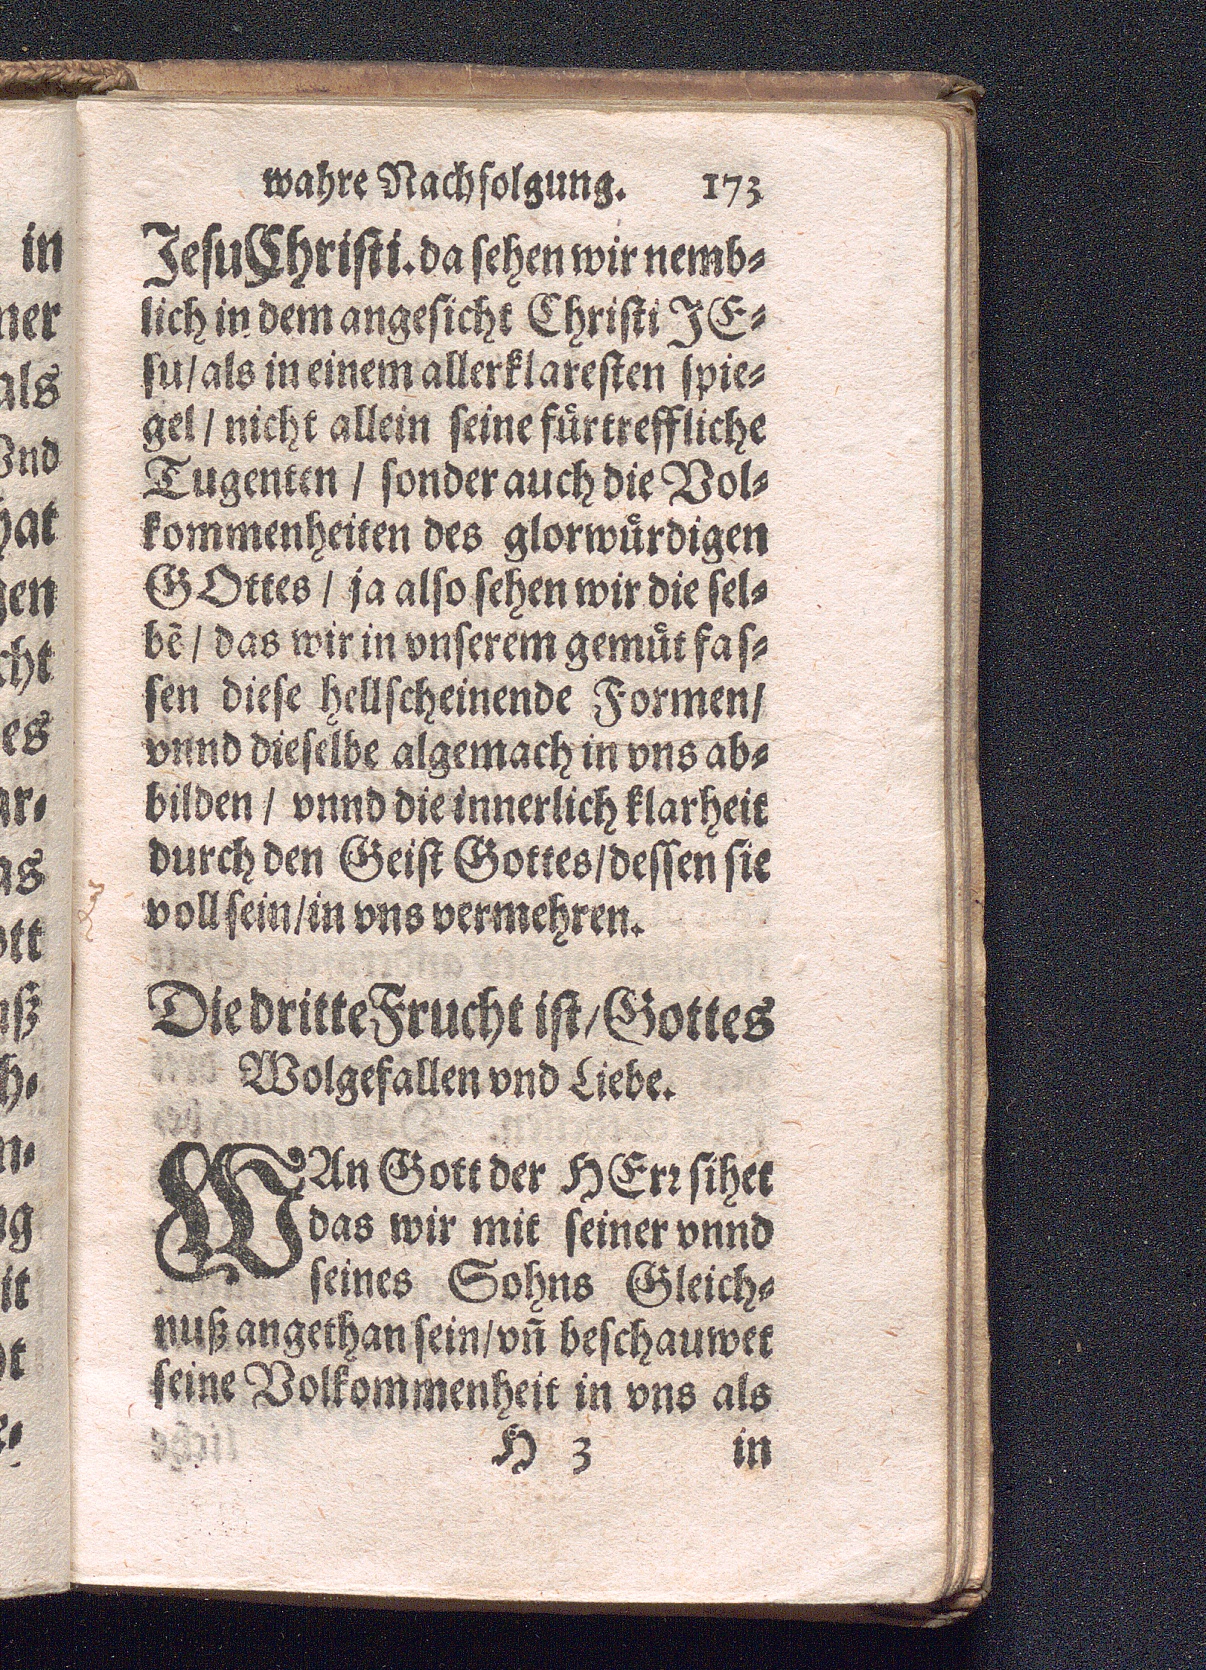 wahre Nachfolgung. 173
Jesu Christi. da sehen wir nemb-
lich in dem angesicht Christi JE-
su/ als in einem allerklaresten spie-
gel/ nicht allein seine fuͤrtreffliche
Tugenten / sonder auch die Vol-
kommenheiten des glorwuͤrdigen
GOttes / ja also sehen wir die sel-
bẽ/ das wir in vnserem gemuͤt fas-
sen diese hellscheinende Formen/
vnnd dieselbe algemach in vns ab-
bilden / vnnd die innerlich klarheit
durch den Geist Gottes/ dessen sie
voll sein/ in vns vermehren.
Die dritte Frucht ist/ Gottes
Wolgefallen vnd Liebe.
WAn Gott der HErr sihet
das wir mit seiner vnnd
seines Sohns Gleich-
nuß angethan sein/ vñ beschauwet
seine Volkommenheit in vns als
H 3 in